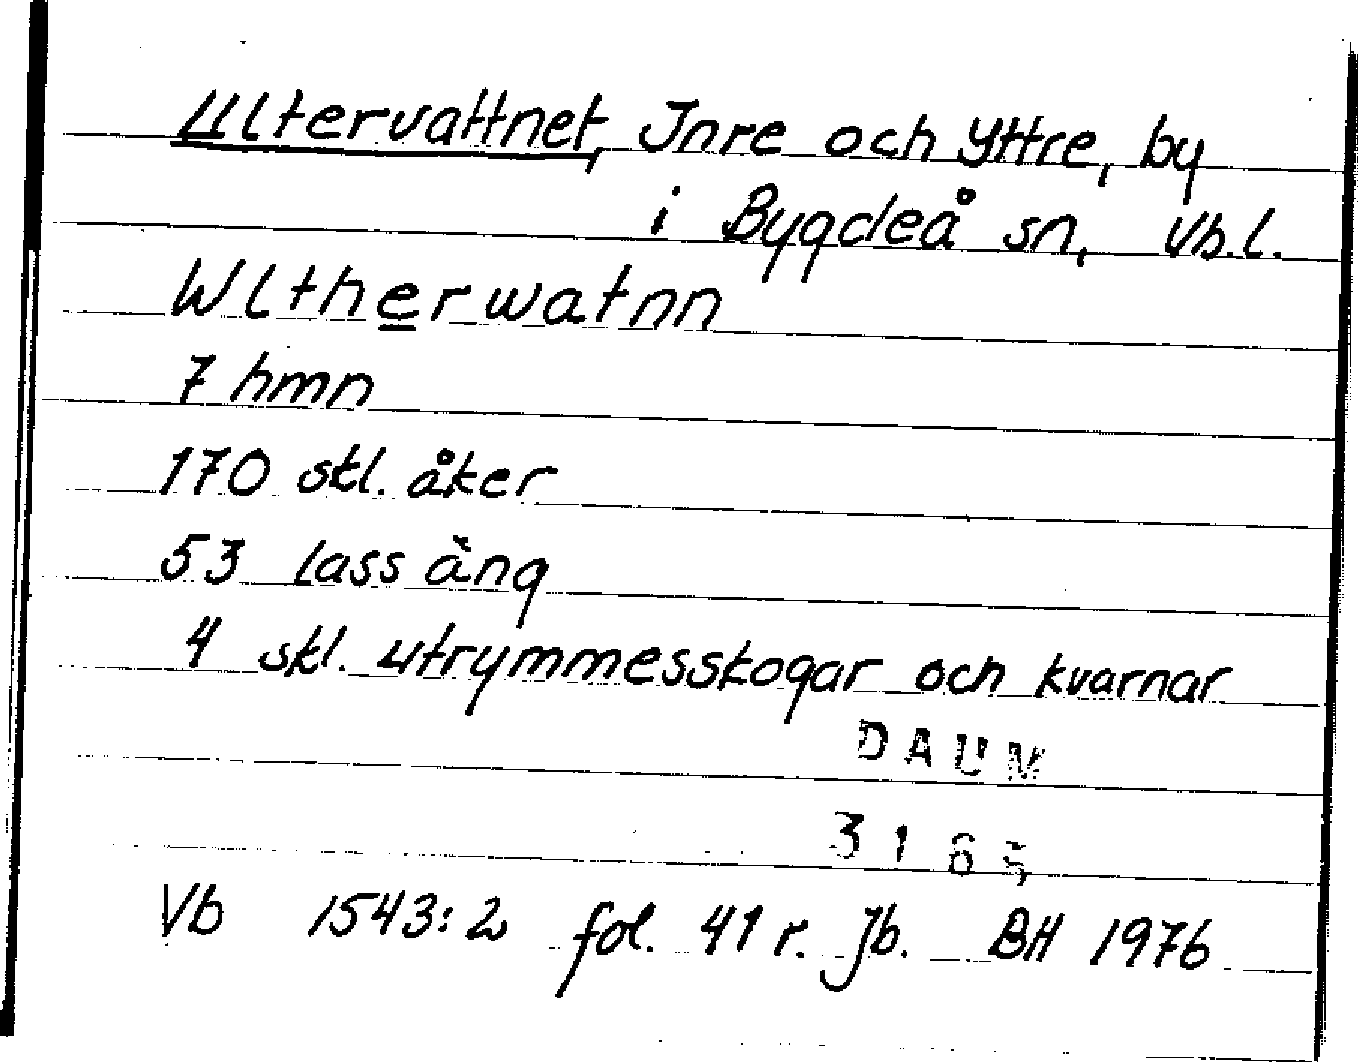 Ultervattnet, Jnre och Yttre, by
i Bygdeå sn, Vb.l.
Wltherwatnn
7 hmn
170 skl. åker
53 lass äng
4 skl. utrymmesskogar och kvarnar
DAUM
3165
Vb 1543:2 fol. 41 r. Jb. BH 1976